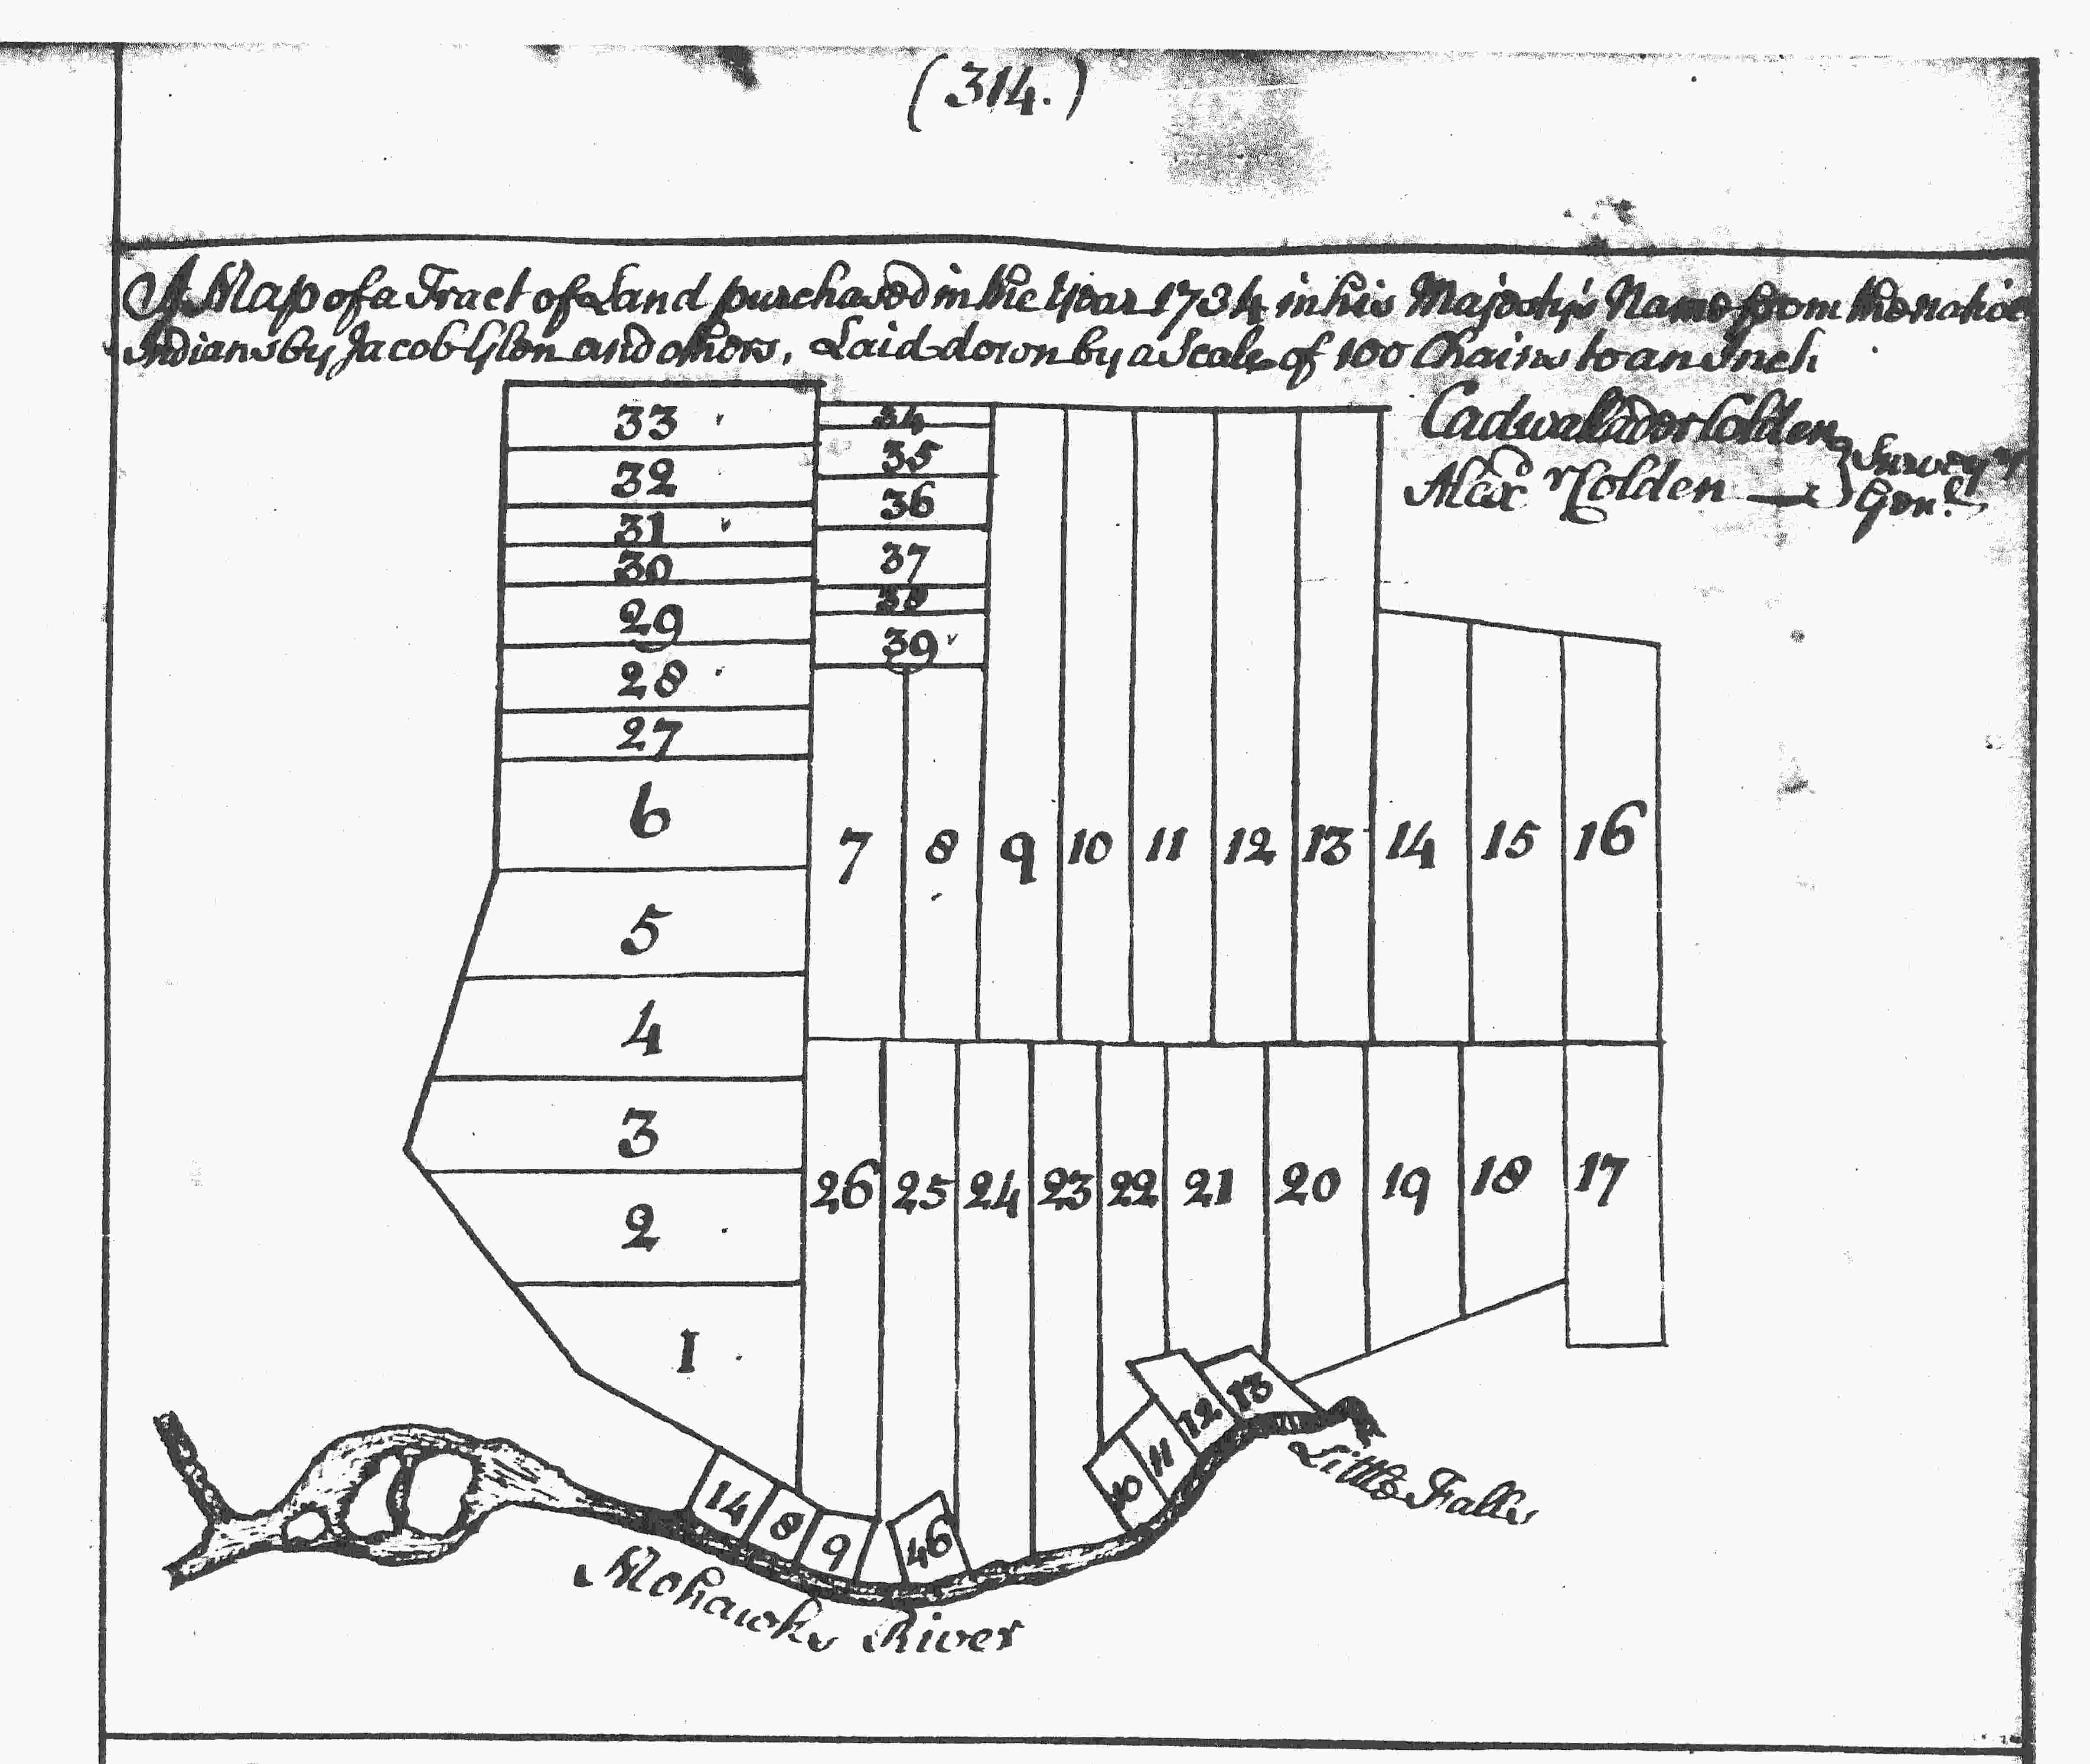 (314.)
A Map of a Tract of Land purchased in the Year 1734 in his Majesty's Name from the native
Indians by Jacob Glen and others, Laid down by a Scale of 100 Chains to an Inch
Cadwallader Colden
Alexr Colden
Surveyrs
Genl.
33
34
35
32
36
31
37
30
38
29
39
28
27
6
7
8
9
10
11
12
13
14
15
16
5
4
3
26
25
24
23
22
21
20
19
18
17
2
1
13
12
11
10
14
8
9
46
Little Falls
Mohawks River